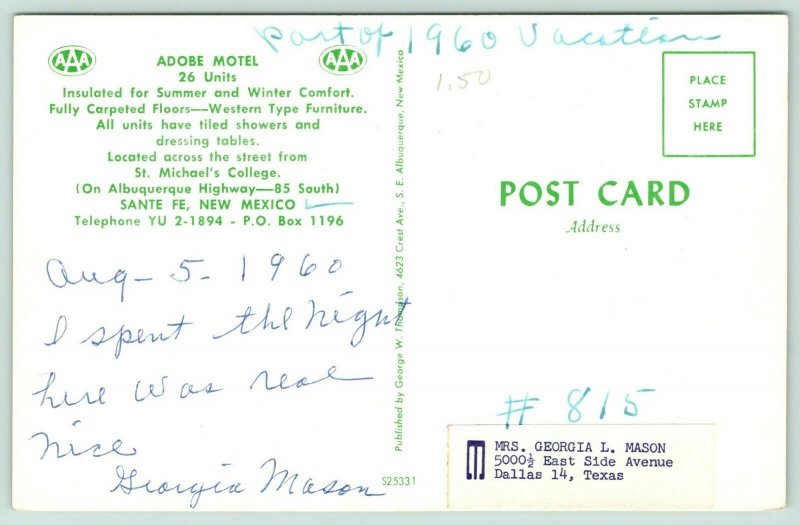 Part of 1960 Vacation
AAA
AAA
ADOBE MOTEL
26 Units
Insulated for Summer and Winter Comfort.
Fully Carpeted Floors—Western Type Furniture.
All units have tiled showers and
dressing tables.
Located across the street from
St. Michael's College.
(On Albuquerque Highway—85 South)
SANTE FE, NEW MEXICO
Telephone YU 2-1894 - P.O. Box 1196
Aug - 5 - 1960
I spent the night
here was real
nice
Georgia Mason
Published by George W. Thompson, 4623 Crest Ave., S. E. Albuquerque, New Mexico
S25331
1.50
PLACE
STAMP
HERE
POST CARD
Address
# 815
MRS. GEORGIA L. MASON
5000½ East Side Avenue
Dallas 14, Texas